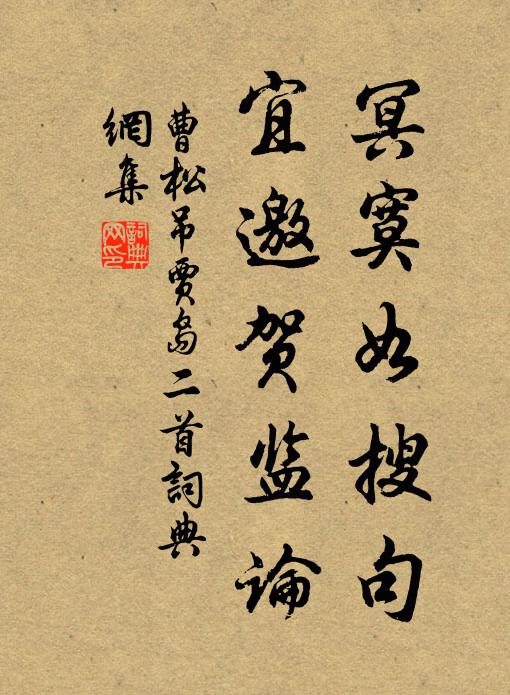 冥寞如搜句
宜邀贺监论
曹松吊贾岛二首詞典
網集
詞典
网印